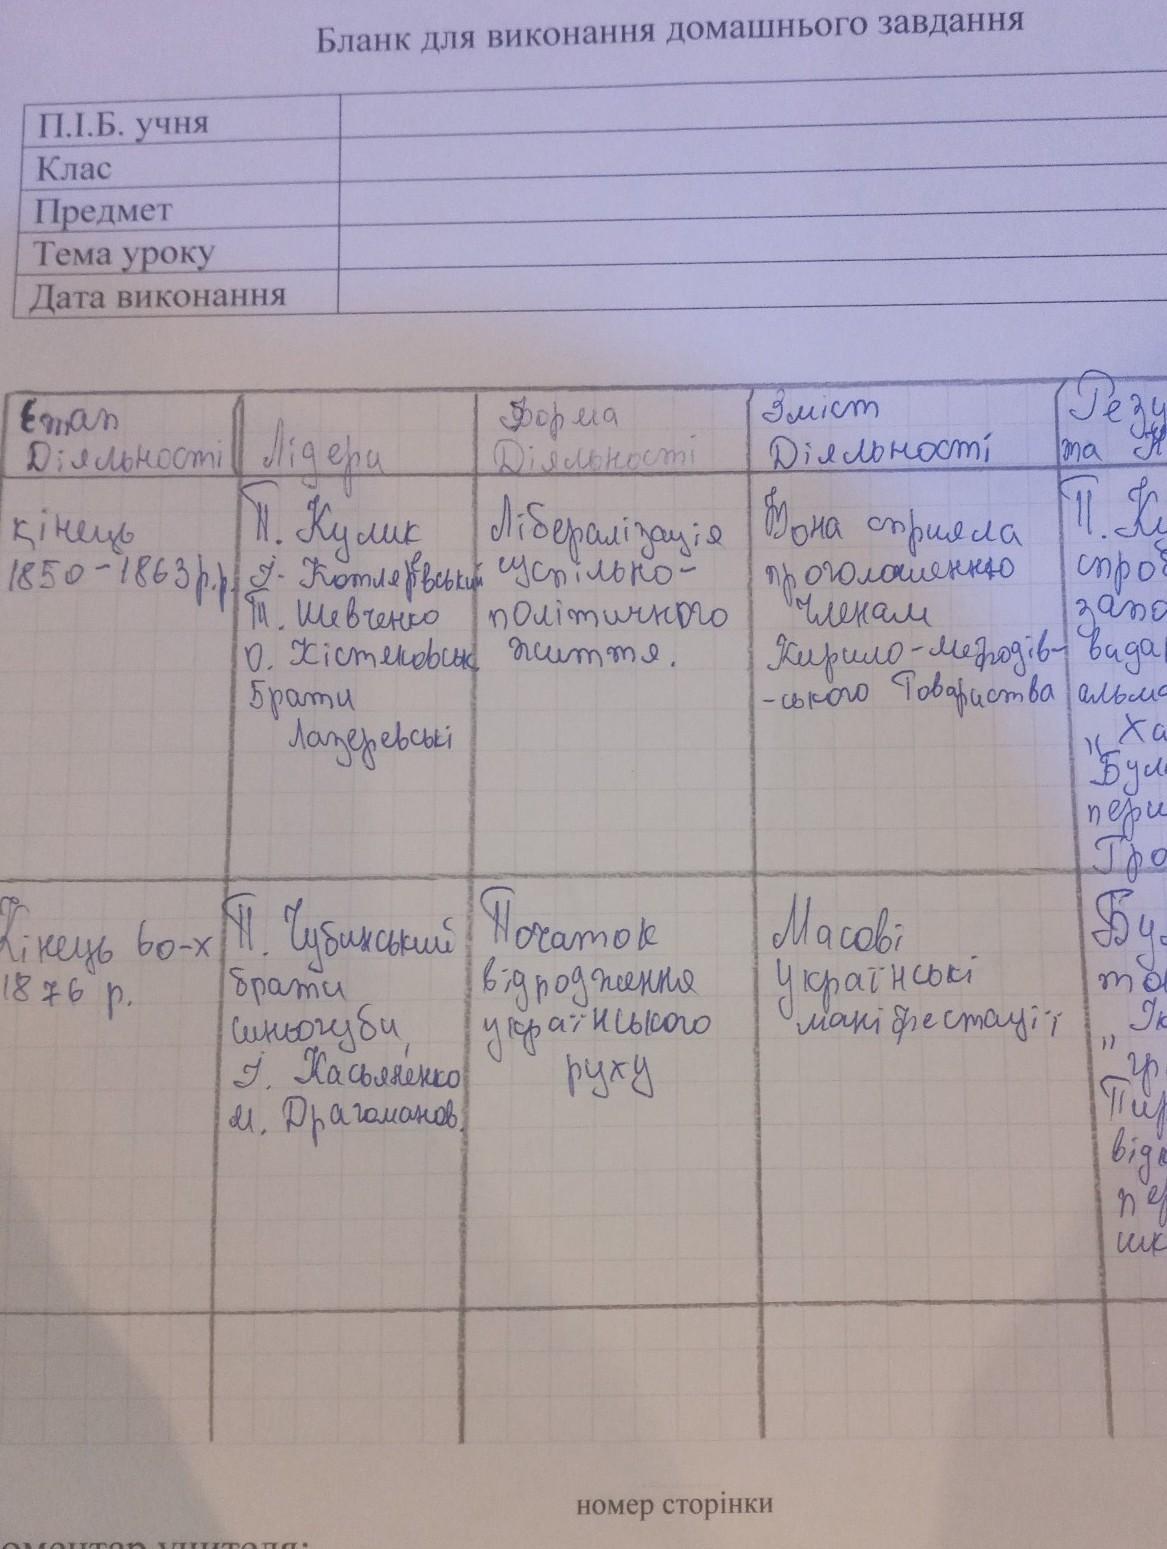 Бланк для виконання домашнього завдання
П.І.Б. учня
Клас
Предмет
Тема уроку
Дата виконання
Етап
Діяльності
Лідери
Форма
Діяльності
Зміст
Діяльності
та
кінець
1850-1863р.р.
П. Кулик
І. Котляревський
Т. Шевченко
О. Кістяковськ
Брати
Лазеревські
Лібералізація
суспільно-
політичного
життя.
Вона сприяла
проголошенню
членам
Кирило-Мефодів-
-ського Товариства
П.
Кінець 60-х
1876 р.
П. Чубинський
брати
синьогуби,
І. Касьяненко
М. Драгоманов.
Початок
відродження
українського
руху
Масові
українські
маніфестації
номер сторінки